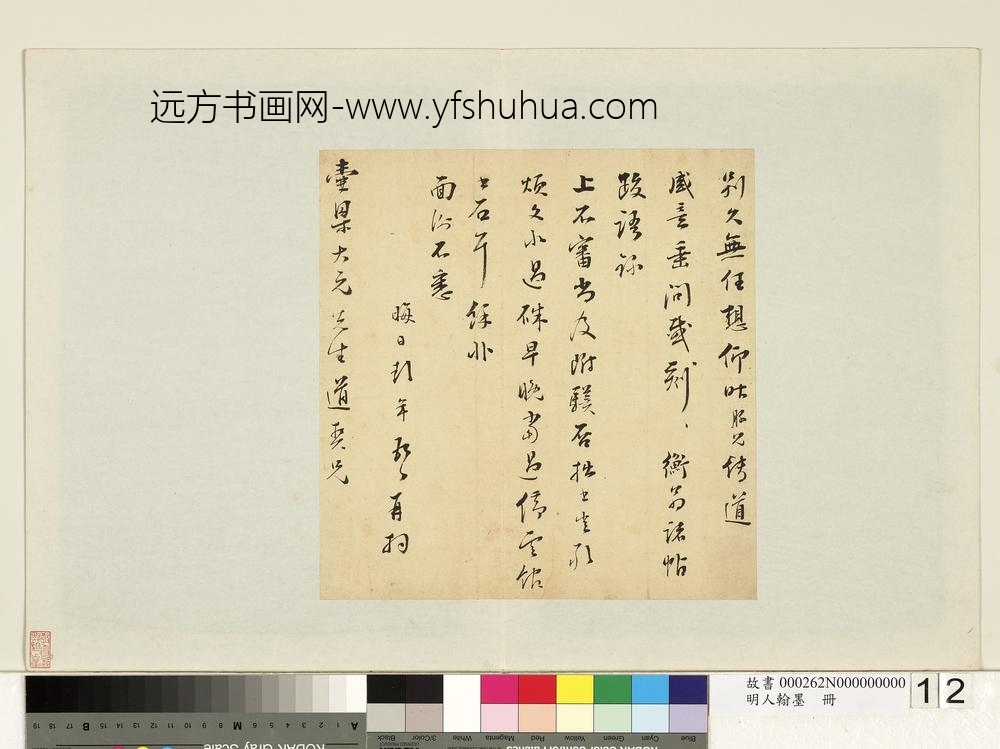 远方书画网-www.yfshuhua.com
別久無任想仰昨兄傳道
盛意垂問感刻衡翁諸帖
跋語
上不審當及附驥否拙書
煩文水過硃早晚當過停雲館
書石耳餘非
面謝不悉
晦日彭年頓首再拜
大兄先生道契兄
故書 000262N000000000 12
明人翰墨 冊
A 1 2 3 4 5 6 M 8 9 10 11 12 13 B 15 17 18 19
KODAK Gray Scale
Blue Cyan Green Yellow Red Magenta White 3/Color Black
KODAK Color Control Patches